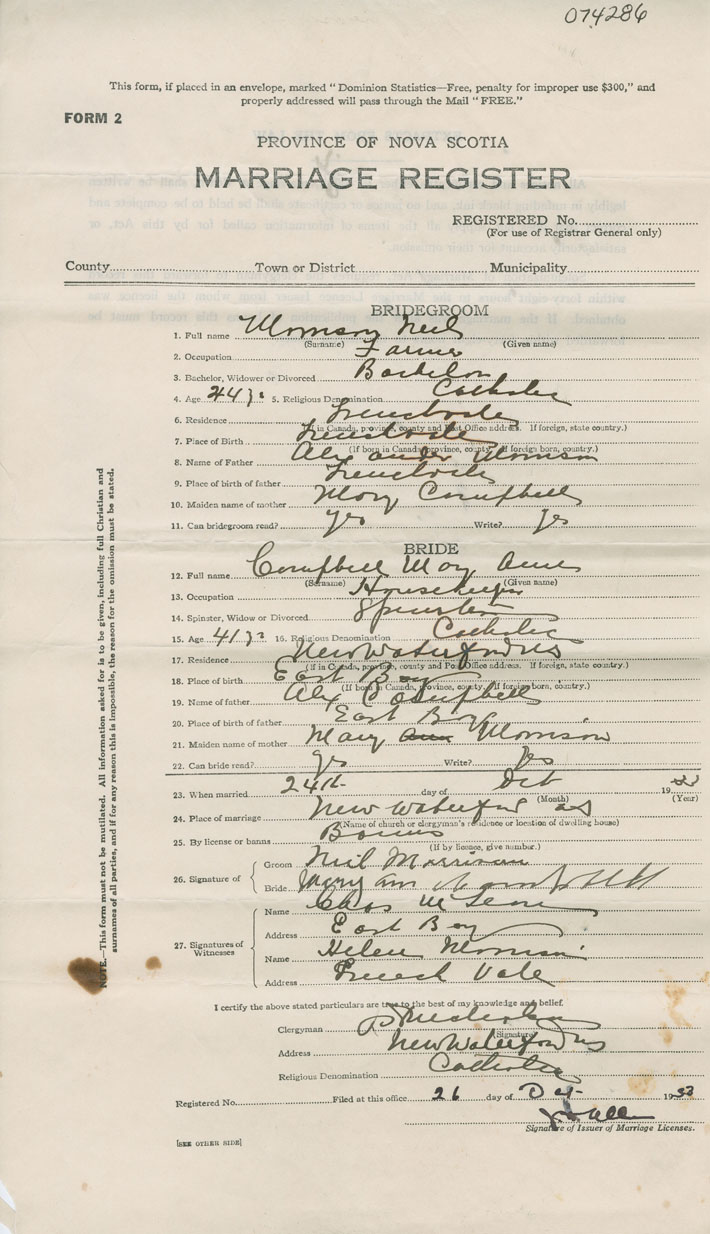 074286
This form, if placed in an envelope, marked "Dominion Statistics—Free, penalty for improper use $300," and
properly addressed will pass through the Mail "FREE."
FORM 2
PROVINCE OF NOVA SCOTIA
MARRIAGE REGISTER
REGISTERED No.
(For use of Registrar General only)
County Town or District Municipality
BRIDEGROOM
1. Full name Morrison Neil
(Surname) (Given name)
2. Occupation Farmer
3. Bachelor, Widower or Divorced Bachelor
4. Age 44 yrs 5. Religious Denomination Catholic
6. Residence Frenchvale
(If in Canada, province, county and Post Office address. If foreign, state country.)
7. Place of Birth Frenchvale
(If born in Canada, province, county, if foreign born, country.)
8. Name of Father Alexander Morrison
9. Place of birth of father Frenchvale
10. Maiden name of mother Mary Campbell
11. Can bridegroom read? yes Write? yes
BRIDE
12. Full name Campbell Mary Ann
(Surname) (Given name)
13. Occupation Housekeeper
14. Spinster, Widow or Divorced Spinster
15. Age 41 yrs 16. Religious Denomination Catholic
17. Residence New Waterford NS
(If in Canada, province, county and Post Office address. If foreign, state country.)
18. Place of birth East Bay
(If born in Canada, province, county, if foreign born, country.)
19. Name of father Alex Campbell
20. Place of birth of father East Bay
21. Maiden name of mother Mary Ann Morrison
22. Can bride read? yes Write? yes
23. When married 24th day of Oct 1933
(Month) (Year)
24. Place of marriage New Waterford NS
(Name of church or clergyman's residence or location of dwelling house)
25. By license or banns Banns
(If by licence, give number.)
26. Signature of Groom Neil Morrison
Bride Mary Ann Campbell
27. Signatures of Witnesses
Name Chas McLean
Address East Bay
Name Helen Morrison
Address French Vale
NOTE.—This form must not be mutilated. All information asked for is to be given, including full Christian and
surnames of all parties, and if for any reason this is impossible, the reason for the omission must be stated.
I certify the above stated particulars are true to the best of my knowledge and belief.
Clergyman
(Signature)
Address New Waterford NS
Religious Denomination Catholic
Registered No. Filed at this office 26 day of Oct 1933
Signature of Issuer of Marriage Licenses.
[SEE OTHER SIDE]